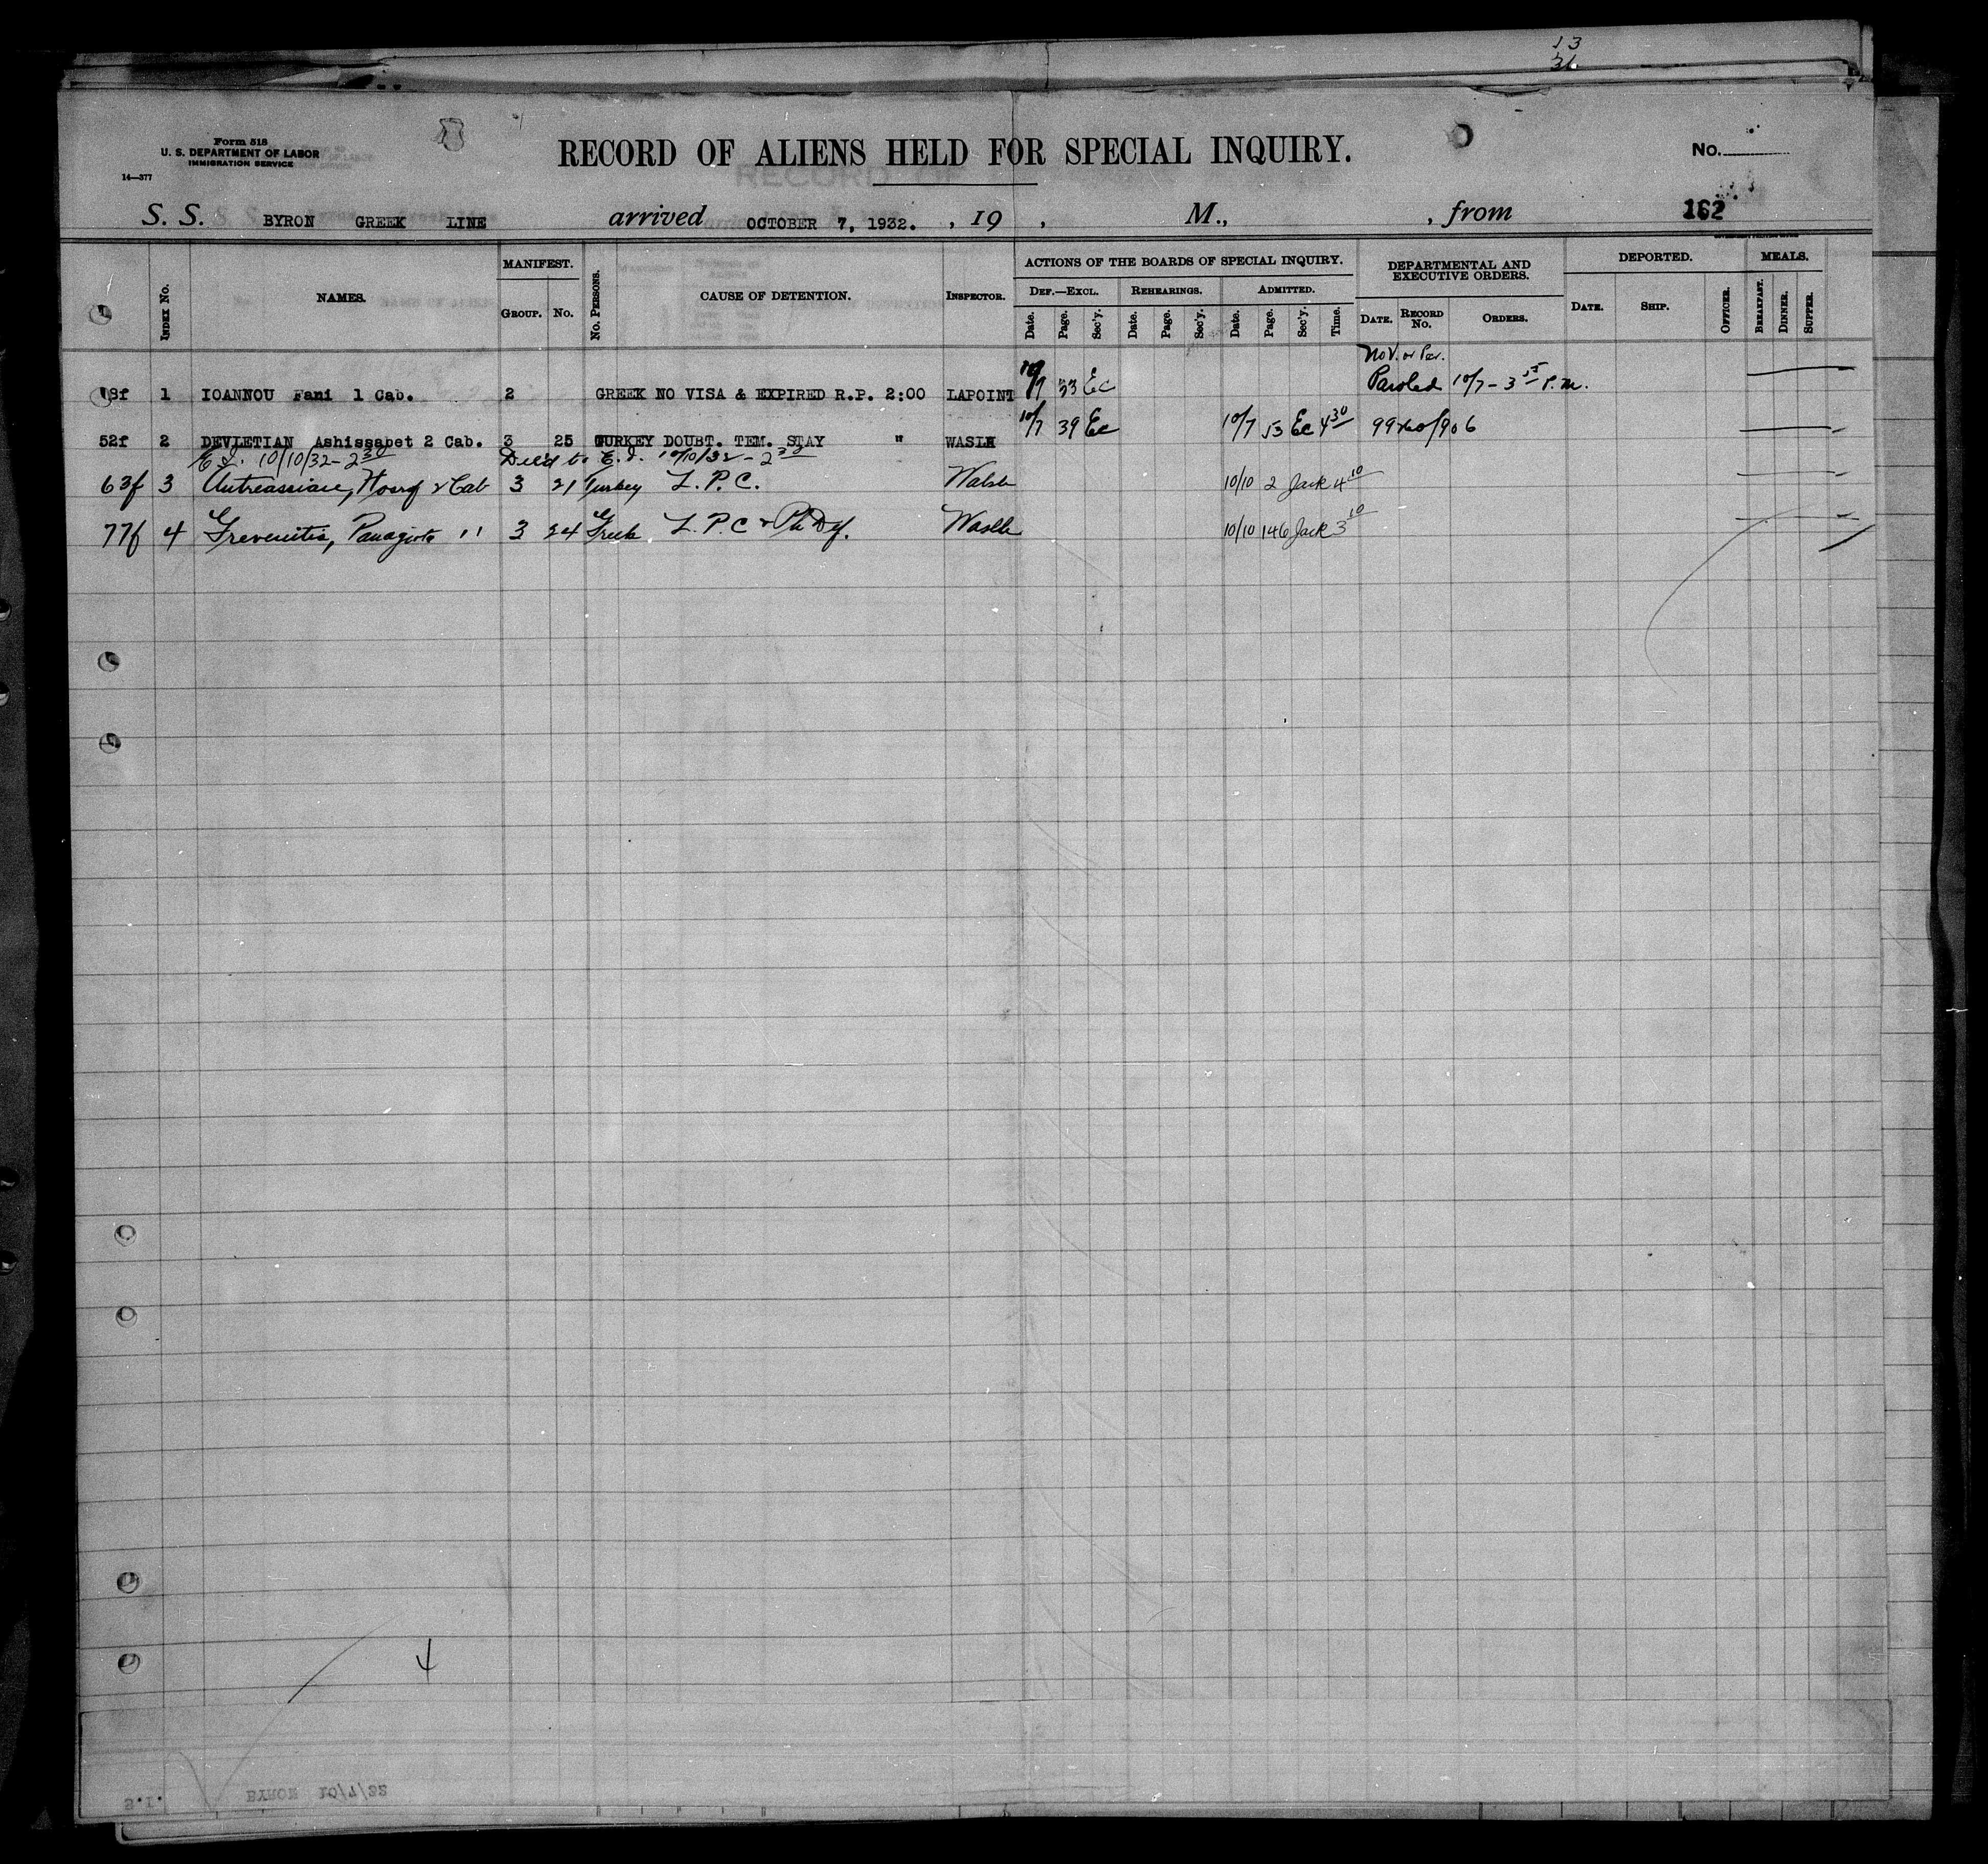 13
31
Form 518
U. S. DEPARTMENT OF LABOR
IMMIGRATION SERVICE
14—377
RECORD OF ALIENS HELD FOR SPECIAL INQUIRY.
No.
S. S. BYRON GREEK LINE arrived OCTOBER 7, 1932. , 19 , M., , from 162
Index No. NAMES. MANIFEST. Group. No. No. Persons. CAUSE OF DETENTION. Inspector. ACTIONS OF THE BOARDS OF SPECIAL INQUIRY. Def.—Excl. Date. Page. Sec'y. Rehearings. Date. Page. Sec'y. Admitted. Date. Page. Sec'y. Time. DEPARTMENTAL AND EXECUTIVE ORDERS. Date. Record No. Orders. DEPORTED. Date. Ship. Officer. MEALS. Breakfast. Dinner. Supper.
No V. or Per.
18f 1 IOANNOU Fani 1 Cab. 2 GREEK NO VISA & EXPIRED R.P. 2:00 LAPOINT 33 Ec Paroled 10/7 - 3 15 P.M.
52f 2 DEVLETIAN Ashissabet 2 Cab. 3 25 TURKEY DOUBT. TEM. STAY " WASLH 10/7 39 Ec 10/7 53 Ec 4 30
E.I. 10/10/32 - 2 30 E.I. 10/10/32 - 2 30
63f 3 2 Cab 3 21 Turkey L.P.C. Walsh 10/10 2 Jack 4 10
77f 4 Grevenitis, Panagiota " 3 24 Greek L.P.C & Ph Def. 10/10 146 Jack 3 10
S.I. BYRON 10/7/32